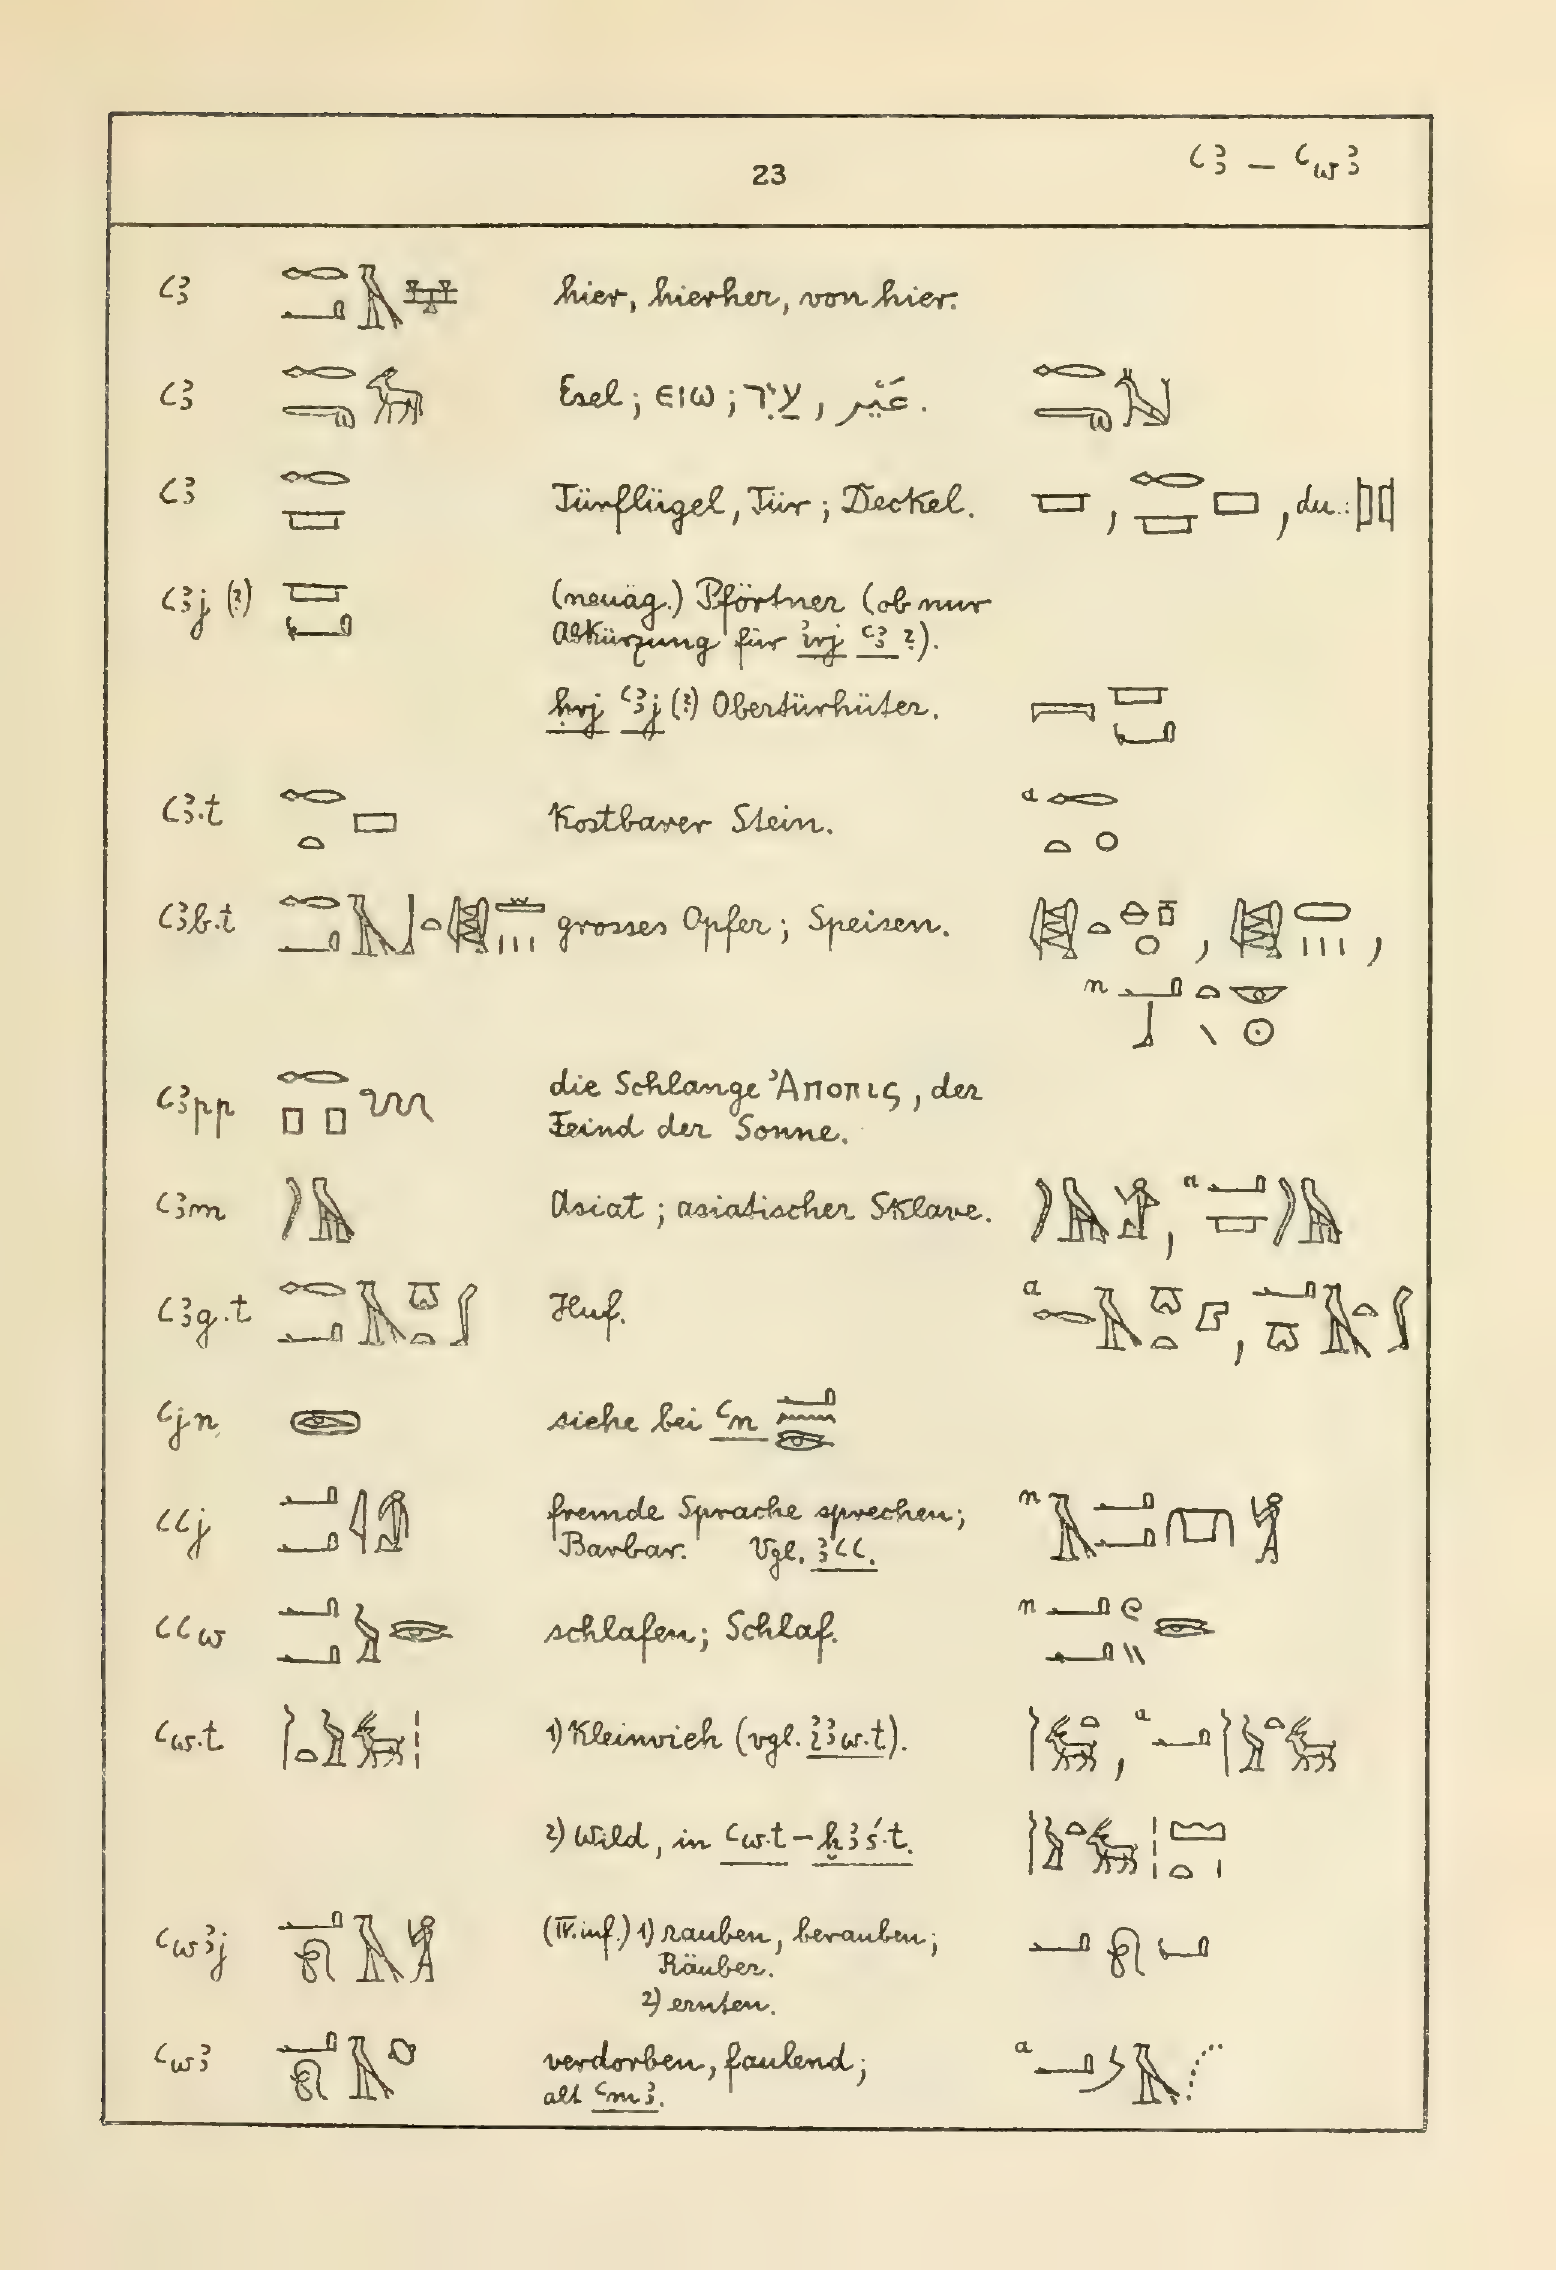 23
ꜥꜣ – ꜥwꜣ
ꜥꜣ hier, hierher, von hier.
ꜥꜣ Esel; ⲉⲓⲱ; עַיִר, عَيْر.
ꜥꜣ Türflügel, Tür; Deckel. , , du.:
ꜥꜣj (?) (neuäg.) Pförtner (ob nur
Abkürzung für ꞽrj ꜥꜣ ?).
ḥrj ꜥꜣj (?) Obertürhüter.
ꜥꜣ.t Kostbarer Stein. a
ꜥꜣb.t grosses Opfer; Speisen. , ,
n
ꜥꜣpp die Schlange Ἄποπις, der
Feind der Sonne.
ꜥꜣm Asiat; asiatischer Sklave. , a
ꜥꜣg.t Huf. a ,
ꜥjn siehe bei ꜥn
ꜥꜥj fremde Sprache sprechen; n
Barbar. Vgl. ꜣꜥꜥ.
ꜥꜥw schlafen; Schlaf. n
ꜥw.t 1) Kleinvieh (vgl. ꞽꜣw.t). , a
2) Wild, in ꜥw.t – ḫꜣś.t.
ꜥwꜣj (IV. inf.) 1) rauben, berauben;
Räuber.
2) ernten.
ꜥwꜣ verdorben, faulend; a
alt ꜥmꜣ.